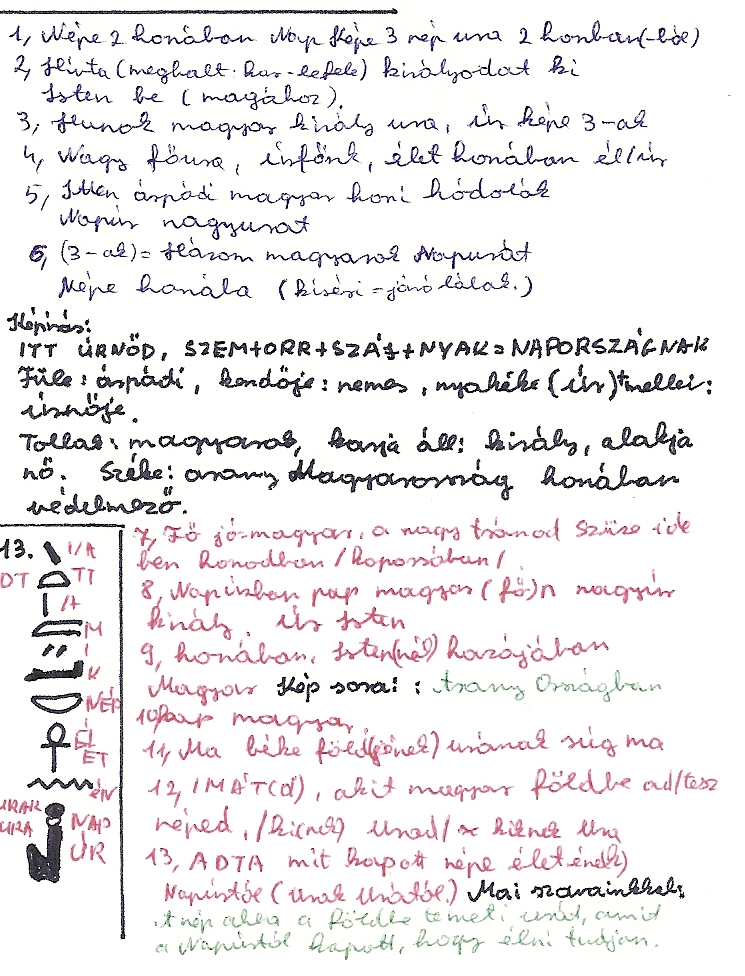 1, Népe 2 honában Nap Képe 3 nép ura 2 honban(-ból)
2, Hívta (meghalt. kar-lefele) királyodat ki
Isten be (magához).
3, Hunok magyar király ura, úr képe 3-ak
4, Nagy főura, úrfőnk, élet honában él/úr
5, Itten árpádi magyar honi hódolók
Napúr nagyurat
6, (3-ak) = Három magyarok Napurát
Népe honába (kíséri = járó lábak.)
Képírás:
ITT ÚRNŐD, SZEM+ORR+SZÁJ+NYAK = NAPORSZÁGNAK
Füle: árpádi, kendője: nemes, nyakéke (úr)+mellei:
úrnője.
Tollas: magyarok, karja áll: király, alakja
nő. Széke: arany Magyarország honában
védelmező.
7, Fő jó-magyar, a nagy trónod Szűze ide
ben honodban /koporsóban/
8, Napúrban pap magyar (fő)n nagyúr
király. úr Isten
9, honában. Isten(nél) hazájában
Magyar Kép sorai: Arany Országban
10, pap magyar,
11, Ma béke föld(jének) urának súg ma
12, IMÁT(d), akit magyar földbe ad/tesz
néped, /ki(nek) Urad/ kiknek Ura
13, ADTA mit kapott népe életének)
Napúrtól (Urak Urától.) Mai szavainkkal:
A nép abba a földbe temeti urát, amit
a Napúrtól kapott, hogy élni tudjon.
13.
I/A
DT TT
IA
M
I
K
NÉP
ÉL
ET
ÉN
URAK NAP
URA ÚR